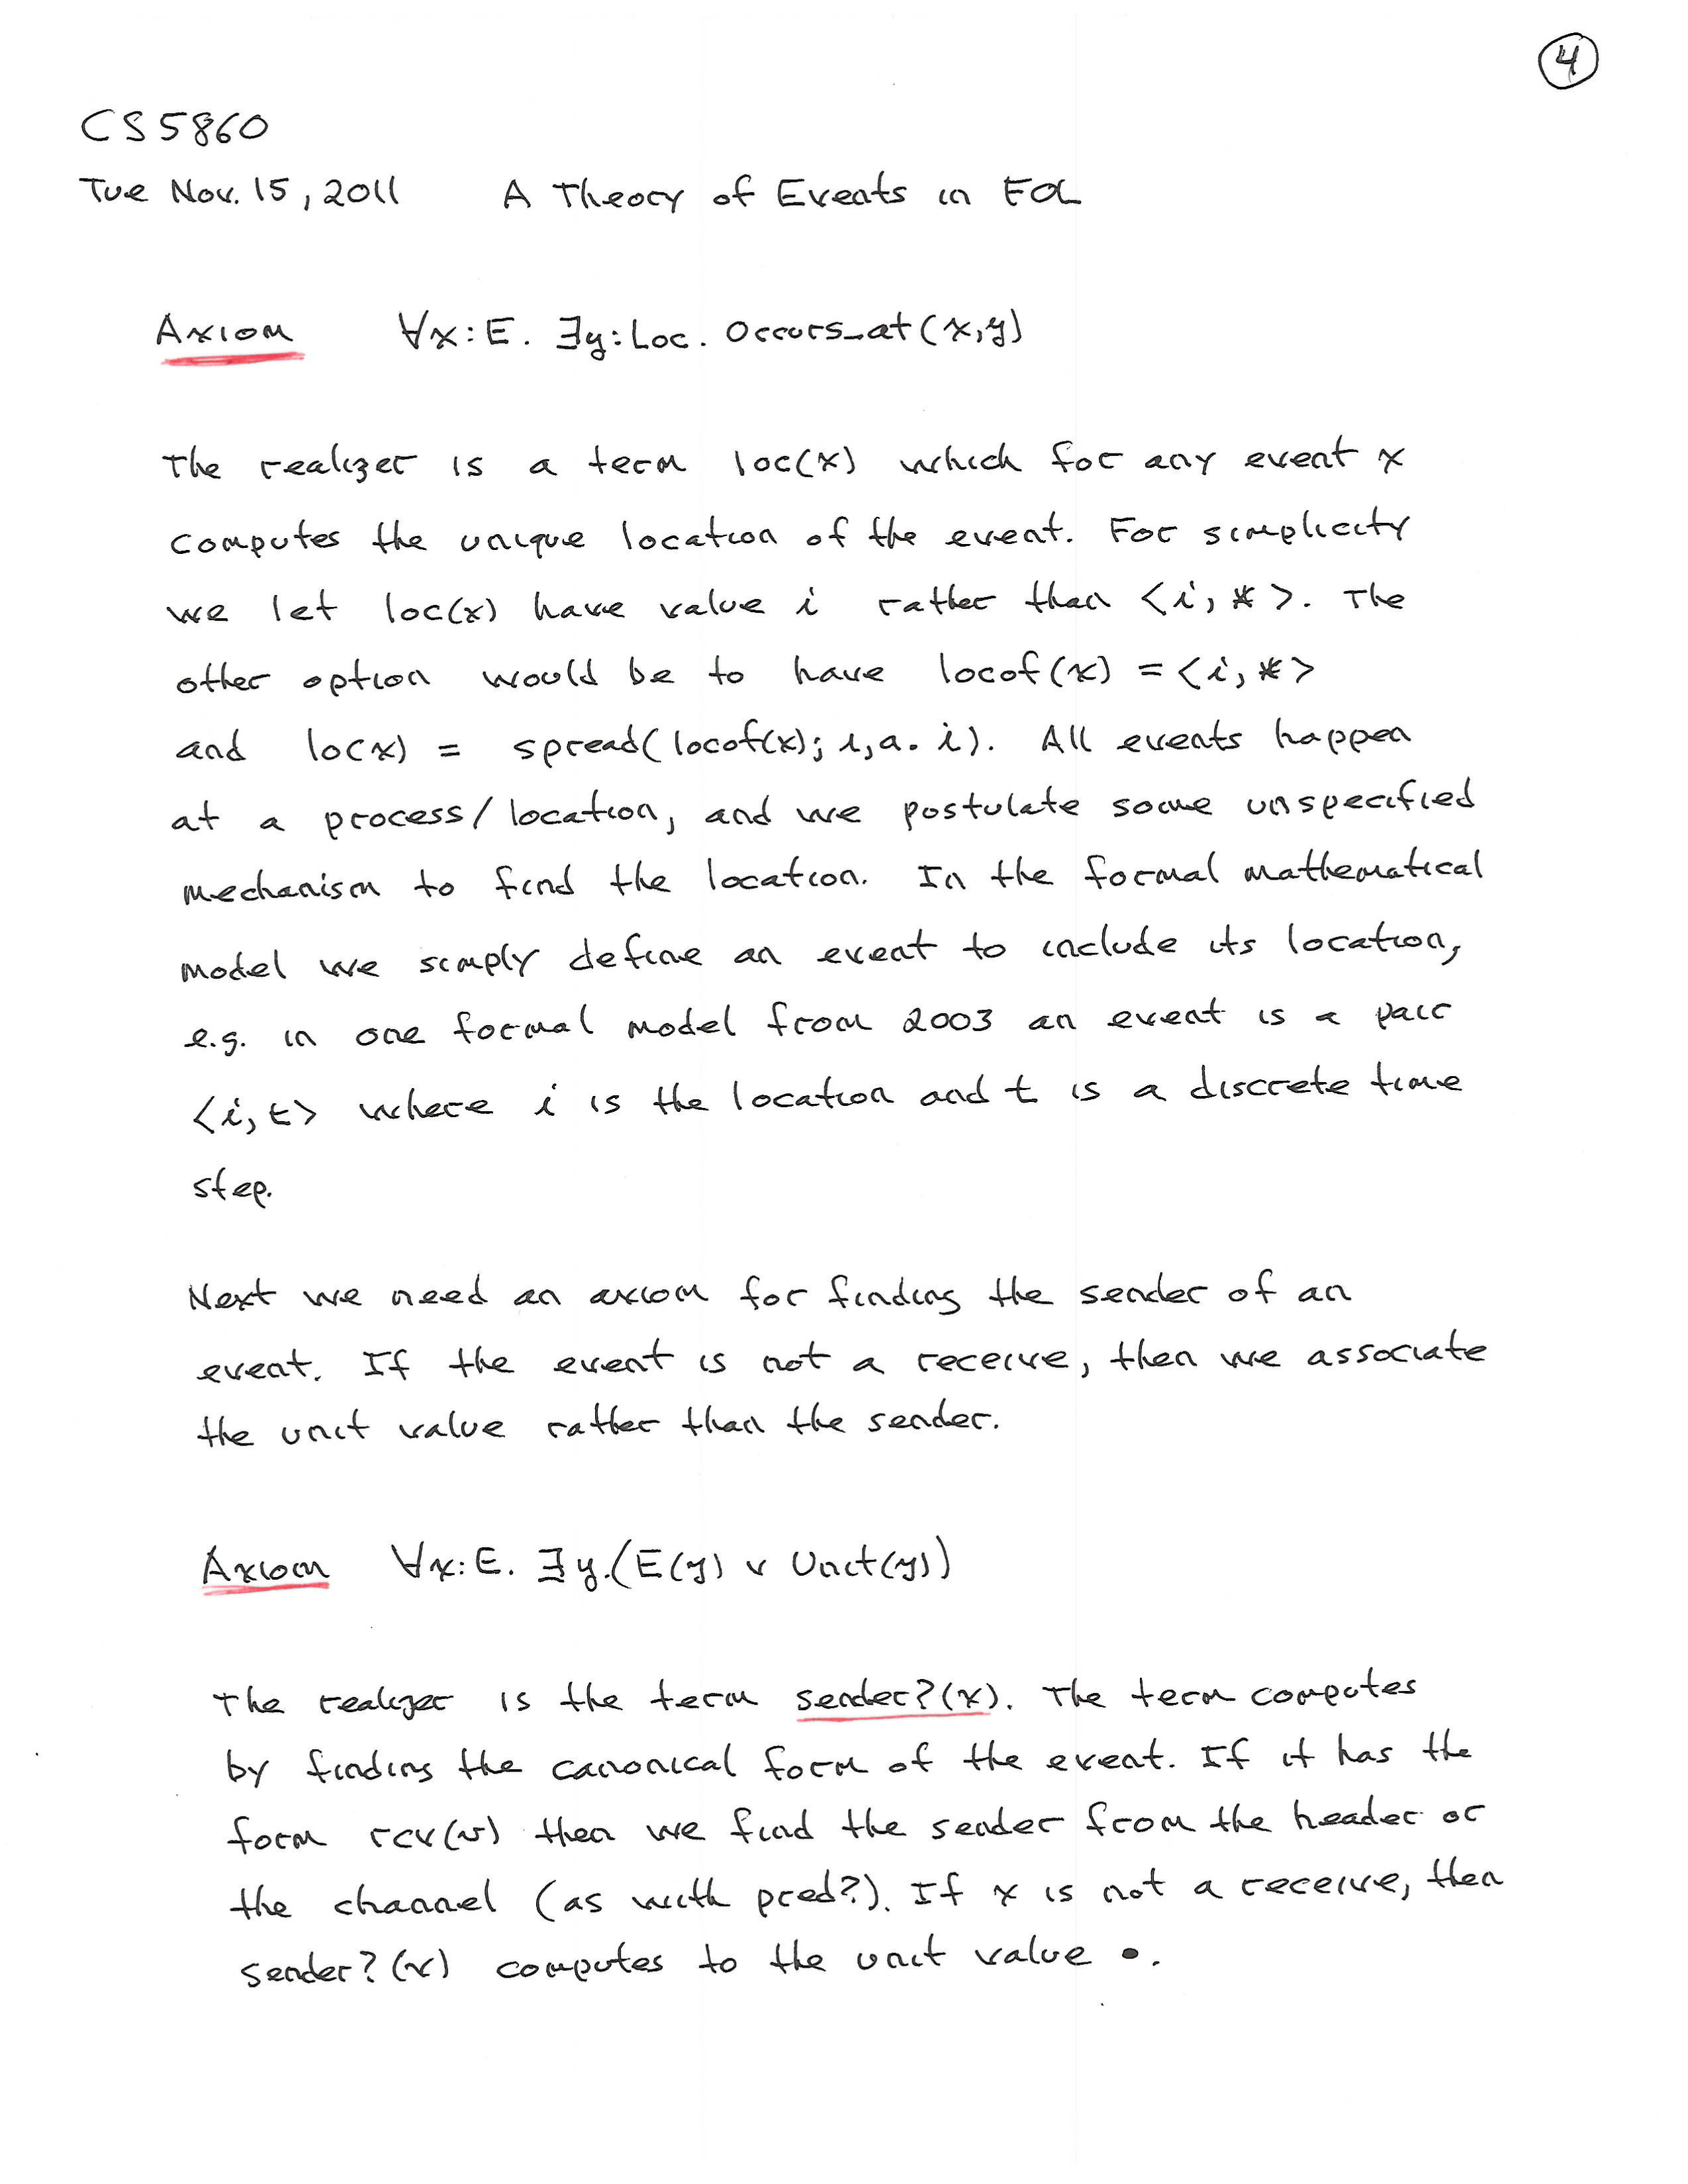 4
CS5860
Tue Nov. 15, 2011 A Theory of Events in FOL
Axiom ∀x:E. ∃y:Loc. Occurs_at(x,y)
The realizer is a term loc(x) which for any event x
computes the unique location of the event. For simplicity
we let loc(x) have value i rather than <i, *>. The
other option would be to have locof(x) = <i, *>
and loc(x) = spread(locof(x); i,a. i). All events happen
at a process/location, and we postulate some unspecified
mechanism to find the location. In the formal mathematical
model we simply define an event to include its location,
e.g. in one formal model from 2003 an event is a pair
<i, t> where i is the location and t is a discrete time
step.
Next we need an axiom for finding the sender of an
event. If the event is not a receive, then we associate
the unit value rather than the sender.
Axiom ∀x:E. ∃y.(E(y) ∨ Unit(y))
The realizer is the term sender?(x). The term computes
by finding the canonical form of the event. If it has the
form rcv(v) then we find the sender from the header or
the channel (as with pred?). If x is not a receive, then
sender?(x) computes to the unit value •.